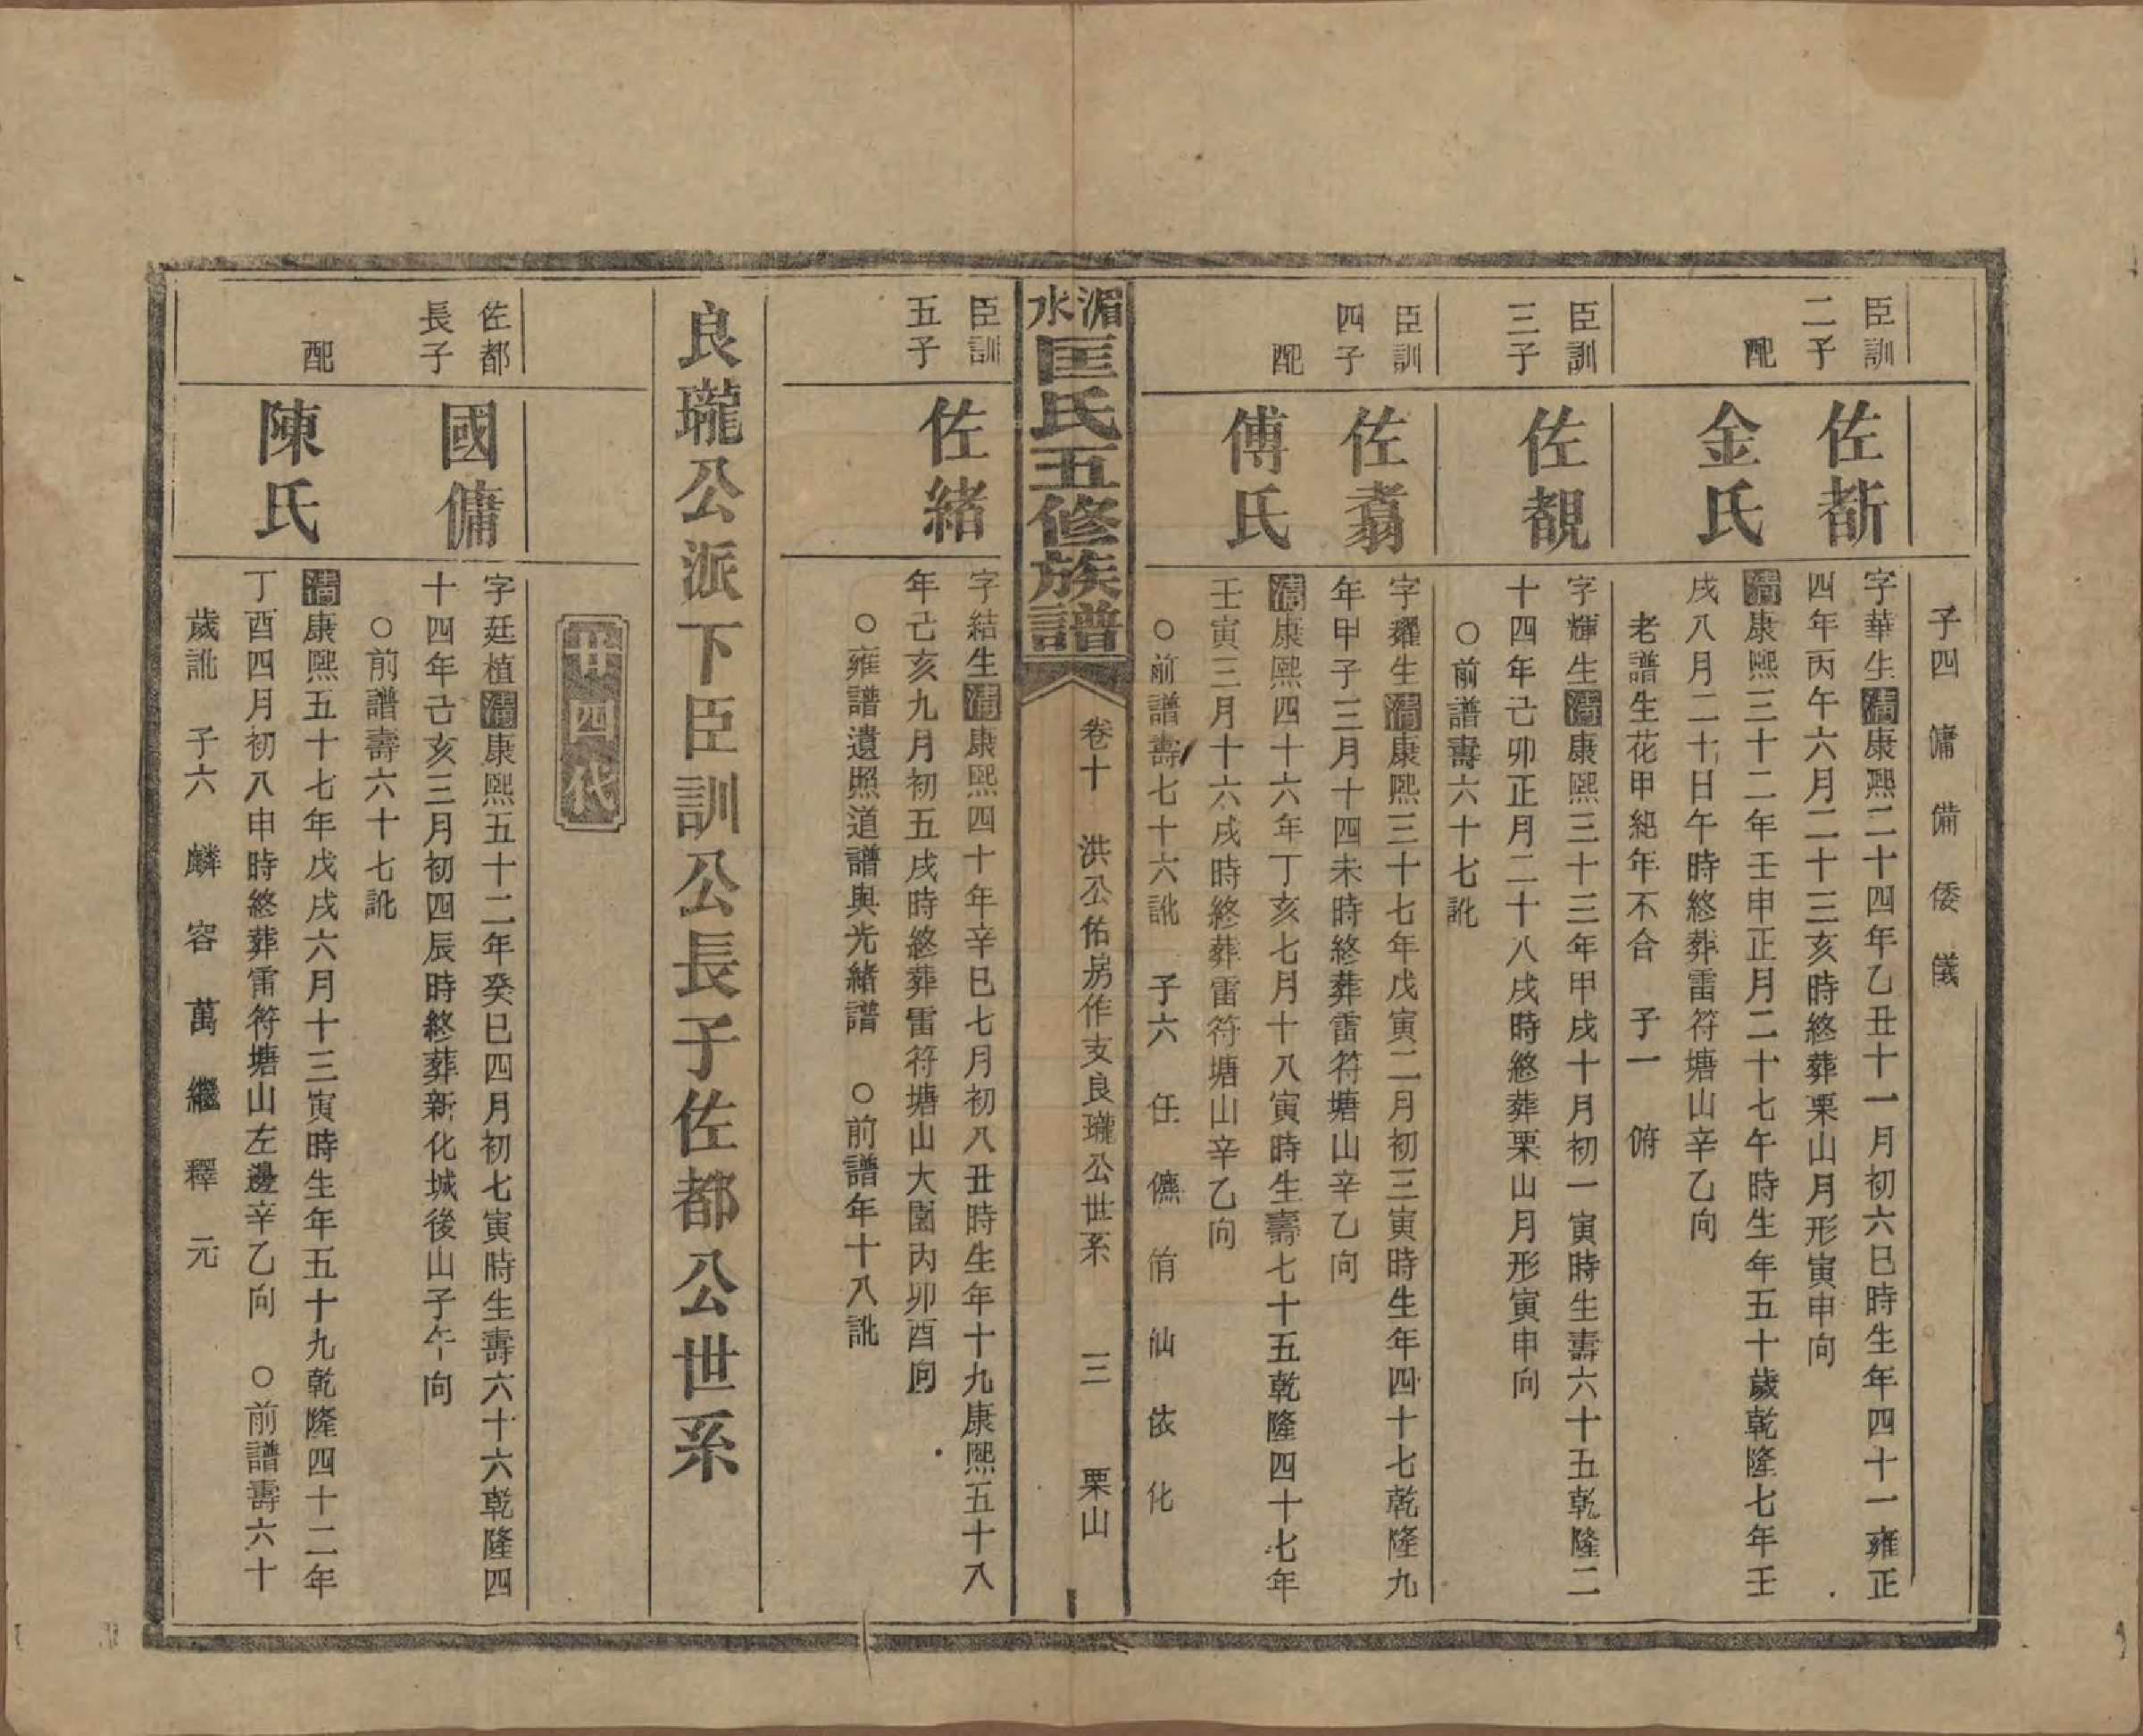 子四 傭 備 倭 儀
臣訓
二子
佐斱
字華生清康熙二十四年乙丑十一月初六巳時生年四十一雍正
四年丙午六月二十三亥時終葬栗山月形寅申向
配
金氏
清康熙三十二年壬申正月二十七午時生年五十歲乾隆七年壬
戌八月二十日午時終葬雷符塘山辛乙向
老譜生花甲紀年不合 子一 俯
臣訓
三子
佐覩
字輝生清康熙三十三年甲戌十月初一寅時生壽六十五乾隆二
十四年己卯正月二十八戌時終葬栗山月形寅申向
○前譜壽六十七訛
臣訓
四子
佐翥
字耀生清康熙三十七年戊寅二月初三寅時生年四十七乾隆九
年甲子三月十四未時終葬雷符塘山辛乙向
配
傅氏
清康熙四十六年丁亥七月十八寅時生壽七十五乾隆四十七年
壬寅三月十六戌時終葬雷符塘山辛乙向
○前譜壽七十六訛 子六 任 儦 侑 仙 依 化
湄水匡氏五修族譜
卷十 洪公佑房作支良瓏公世系 三 栗山
臣訓
五子
佐緒
字結生清康熙四十年辛巳七月初八丑時生年十九康熙五十八
年己亥九月初五戌時終葬雷符塘山大園內卯酉向
○雍譜遺照道譜與光緒譜 ○前譜年十八訛
良瓏公派下臣訓公長子佐都公世系
廿四代
佐都
長子
國傭
字廷植清康熙五十二年癸巳四月初七寅時生壽六十六乾隆四
十四年己亥三月初四辰時終葬新化城後山子午向
○前譜壽六十七訛
配
陳氏
清康熙五十七年戊戌六月十三寅時生年五十九乾隆四十二年
丁酉四月初八申時終葬雷符塘山左邊辛乙向 ○前譜壽六十
歲訛 子六 麟 容 萬 繼 釋 元